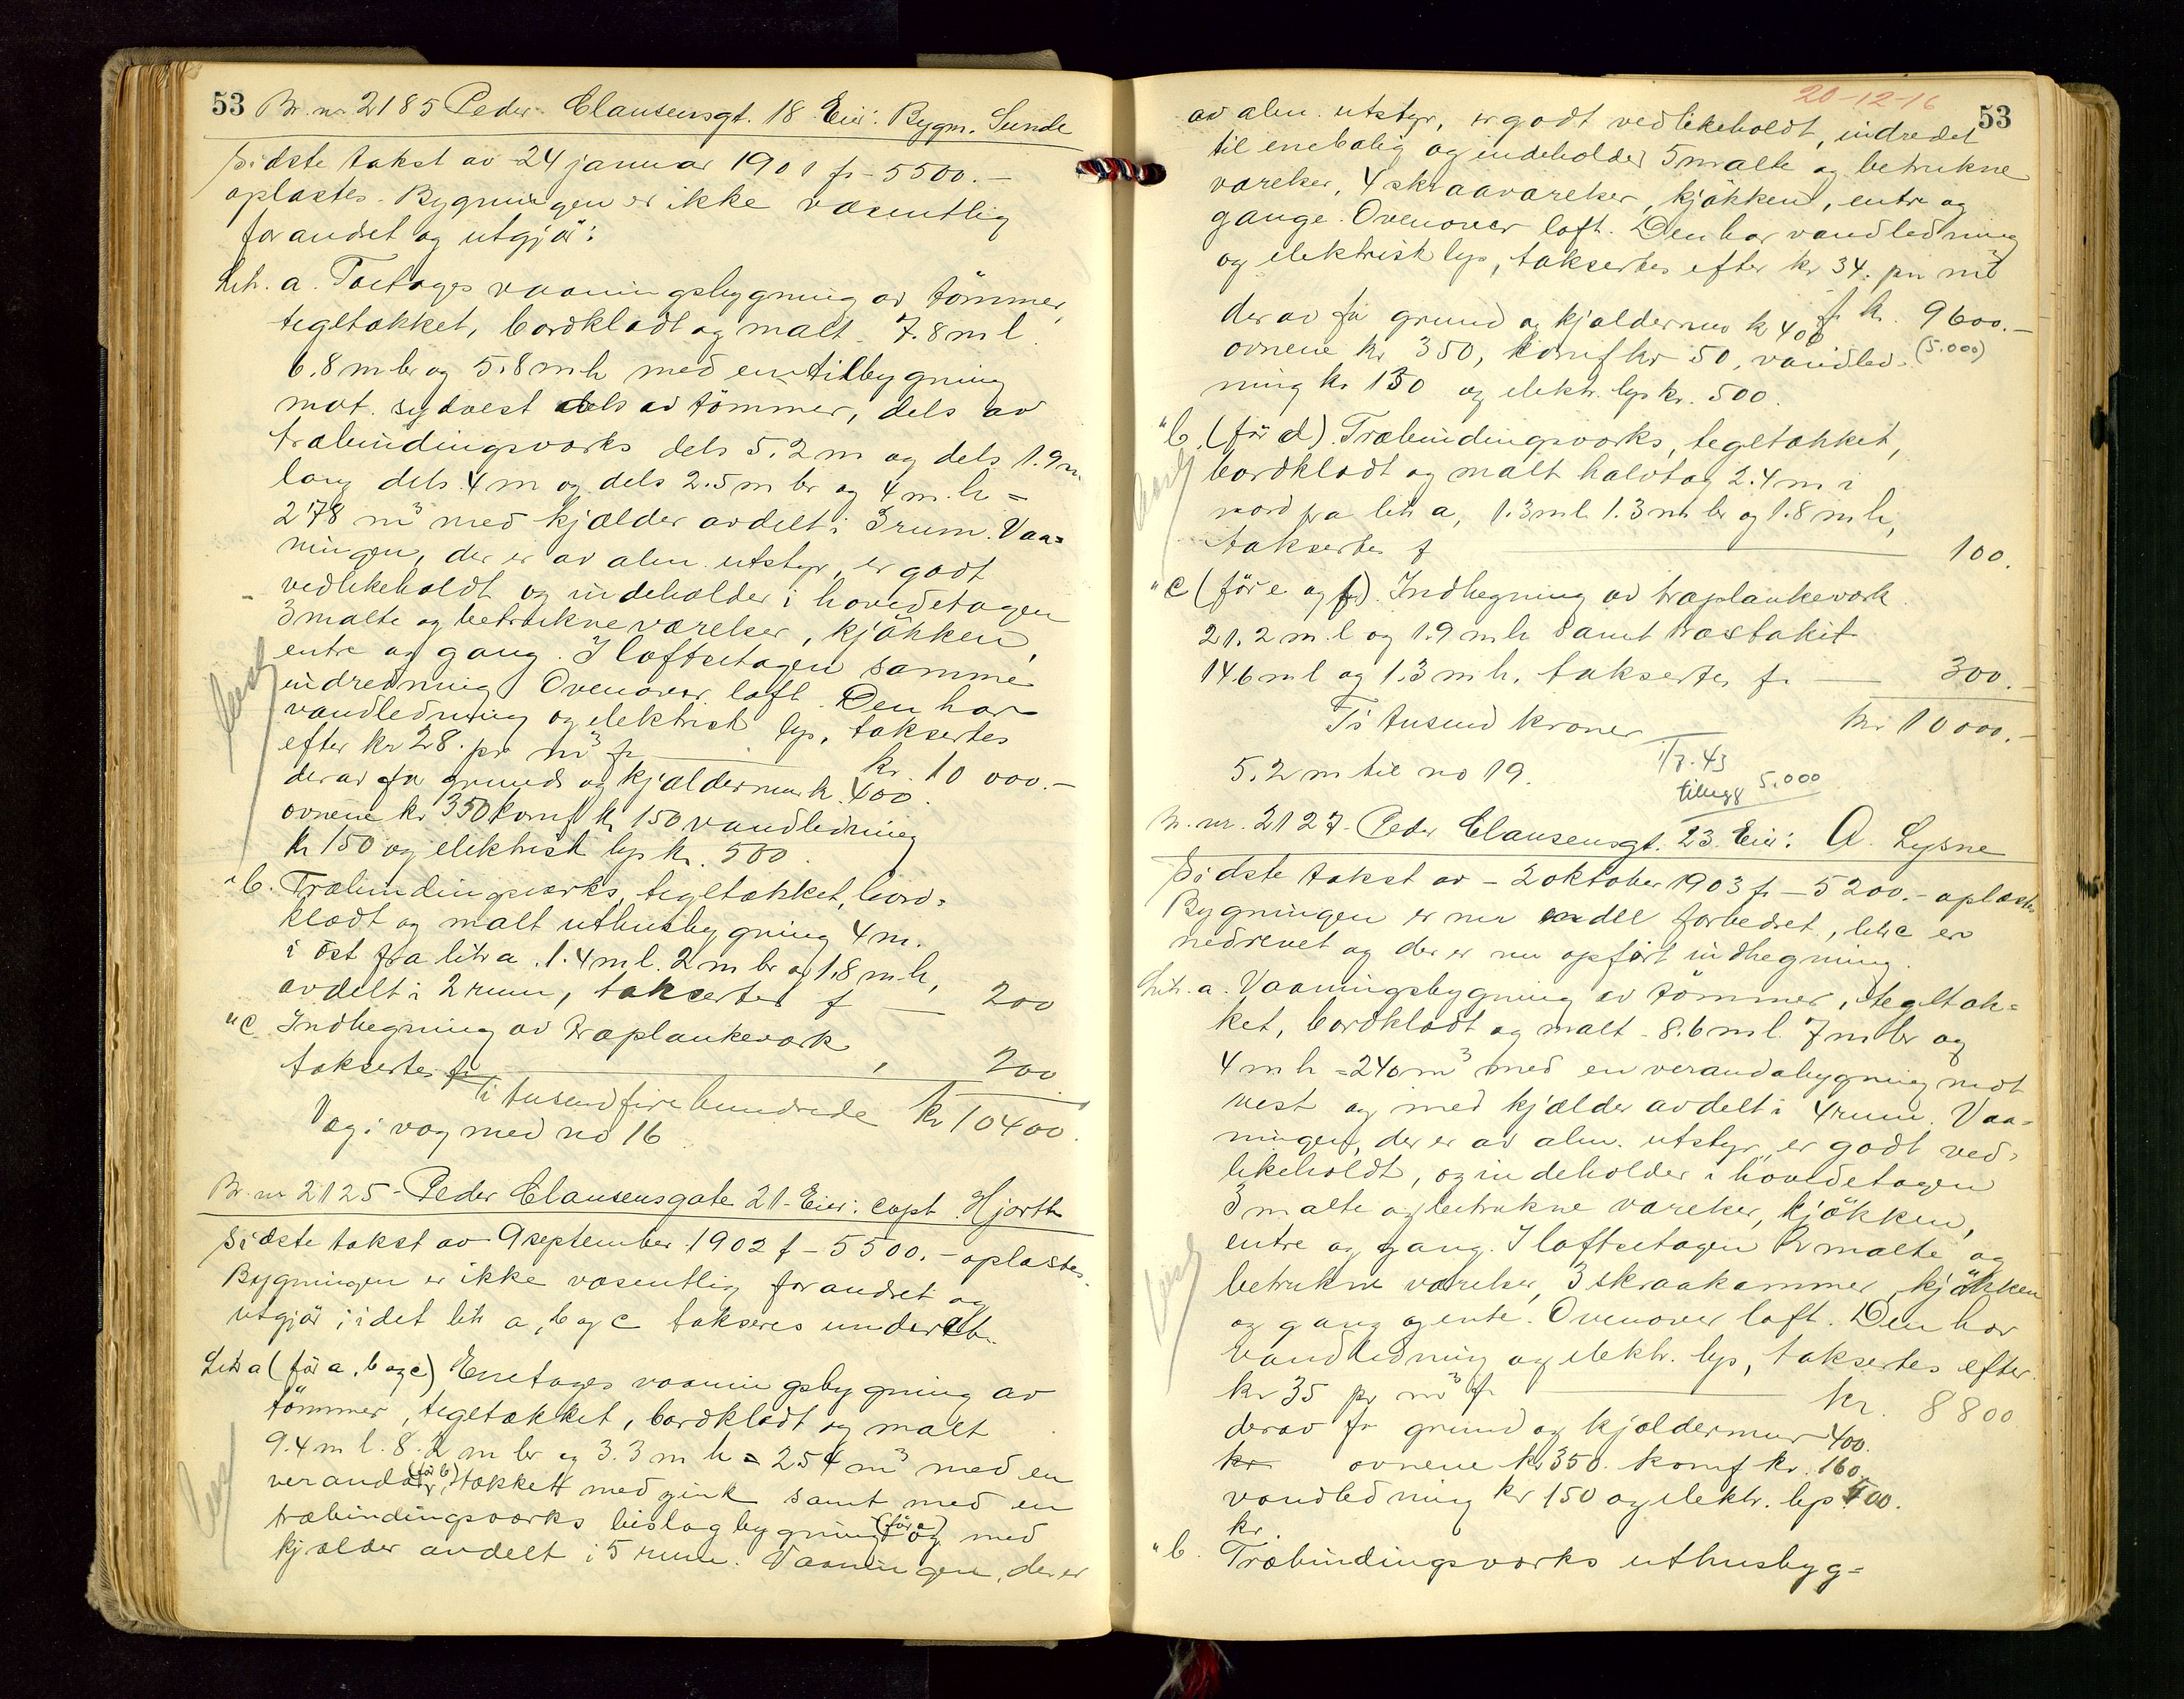 53 Br. nr. 2185 Peder Clausensgt. 18 Eier: Bygm. Sunde
Sidste takst av 24 januar 1901 fr - 5500.-
oplæstes. Bygningen er ikke væsentlig
forandret og utgjør:
Litr. a. Toetages vaaningsbygning av tømmer,
tegltækket, bordklædt og malt. 7.8 m l.
6.8 m br og 5.8 m h med en tilbygning
mot sydvest dels av tømmer, dels av
træbindingsværks dels 5.2 m og dels 1.9 m
lang dels 4 m og dels 2.5 m br og 4 m. h =
278 m³ med kjælder avdelt i 3 rum. Vaa=
ningen, der er av alm. utstyr, er godt
vedlikeholdt og indeholder i hovedetagen
3 malte og betrukne værelser, kjøkken,
entre og gang. I loftsetagen samme
indredning. Ovenover loft. Den har
vandledning og elektrisk lys, taksertes
efter kr 28. pr m³ fr kr. 10 000.-
derav for grund og kjældermur k. 400.
ovnene kr 350 komf kr 150 vandledning
kr 150 og elektrisk lys kr. 500.
" b. Træbindingsværks, tegltækket, bord=
klædt og malt uthusbygning 4 m.
i øst fra litr a. 1.4 m l. 2 m br og 1.8 m. h,
avdelt i 2 rum, taksertes f 200
" c Indhegning av træplankeværk,
taksertes fr 200
Ti tusend fire hundrede kr 10400.
Væg i væg med no 16
Br. nr 2125 - Peder Clausensgate 21 - Eier: capt. Hjorth
Sidste takst av 9 september 1902 f - 5500.- oplæstes.
Bygningen er ikke væsentlig forandret og
utgjør; idet litr a, b og c takseres under ett.
Litr a (før a, b og c) Enetages vaaningsbygning av
tømmer, tegltækket, bordklædt og malt
9.4 m l. 8.2 m br og 3.3 m h = 254 m³ med en
veranda (før b), tækket med zink samt med en
træbindingsværks bislagbygning (før c) og med
kjælder avdelt i 5 rum. Vaaningen, der er
20-12-16
53
av alm. utstyr, er godt vedlikeholdt, indredet
til enebolig og indeholder 5 malte og betrukne
værelser, 4 skraaværelser, kjøkken, entre og
gange. Ovenover loft. Den har vandledning
og elektrisk lys, taksertes efter kr 34. pr m³
fr kr. 9600.-
derav for grund og kjældermur k 400
(5.000)
ovnene kr 350, komf kr 50, vandled=
ning kr 150 og elektr. lys kr. 500.
" b. (før d). Træbindingsværks, tegltækket,
bordklædt og malt halvtag 2.4 m i
nord fra litr a, 1.3 m l. 1.3 m br og 1.8 m h,
taksertes f 100.
" c (før e og f). Indhegning av træplankeværk
21.2 m. l og 1.9 m h samt træstakit
14.6 m l og 1.3 m h. taksertes fr 300.-
Ti tusend kroner kr 10000.-
5.2 m til no 19.
1/7-43
tillegg 5.000
Br. nr. 2127 - Peder Clausensgt. 23. Eier: A. Lysne
Sidste takst av - 2 oktober 1903 fr - 5200.- oplæstes
Bygningen er nu endel forbedret, litr c er
nedrevet og der er nu opført indhegning.
Litr. a. Vaaningsbygning av tømmer, tegltæk=
ket, bordklædt og malt - 8.6 m l. 7 m br og
4 m h = 240 m³ med en verandabygning mot
vest og med kjælder avdelt i 4 rum. Vaa=
ningen, der er av alm. utstyr, er godt ved=
likeholdt, og indeholder i hovedetagen
3 malte og betrukne værelser, kjøkken,
entre og gang. I loftsetagen 2 malte og
betrukne værelser, 3 skraakammer, kjøkken
og gang og entre. Ovenover loft. Den har
vandledning og elektr. lys, taksertes efter
kr 35 pr m³ fr kr. 8800
derav fr grund og kjældermur 400.
kr ovnene kr 350. komf kr. 160,
vandledning kr 150 og elektr. lys 400.
kr.
" b. Træbindingsværks uthusbyg=